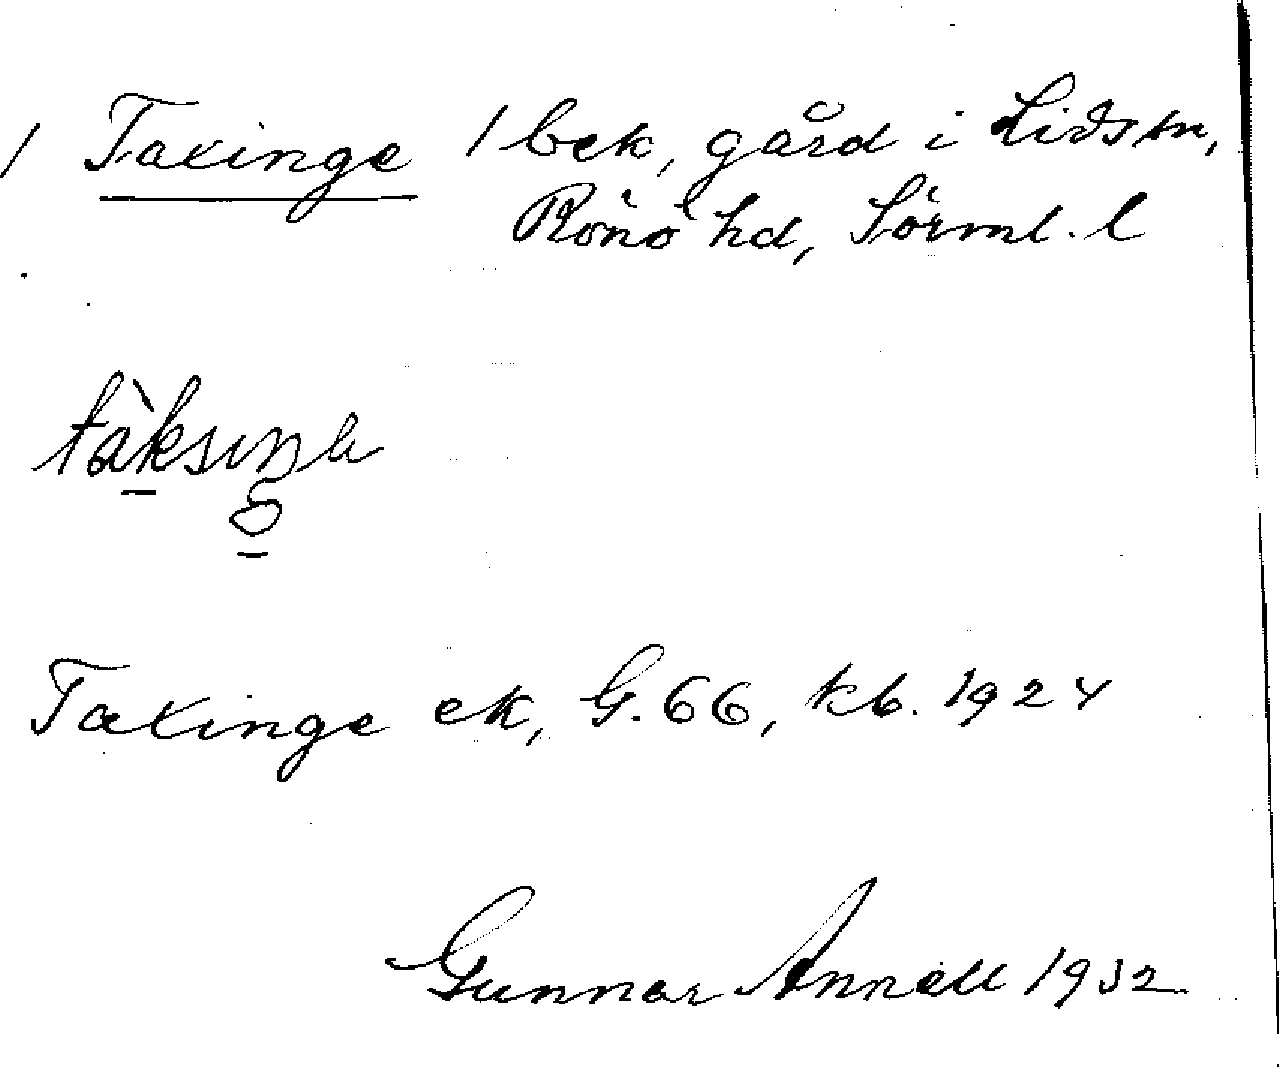 / Taxinge / bek, gård i Lids sn,
Rönö hd, Sörml. l
Taxinge ek, G. 66, kb. 1924
Gunnar Annell 1932